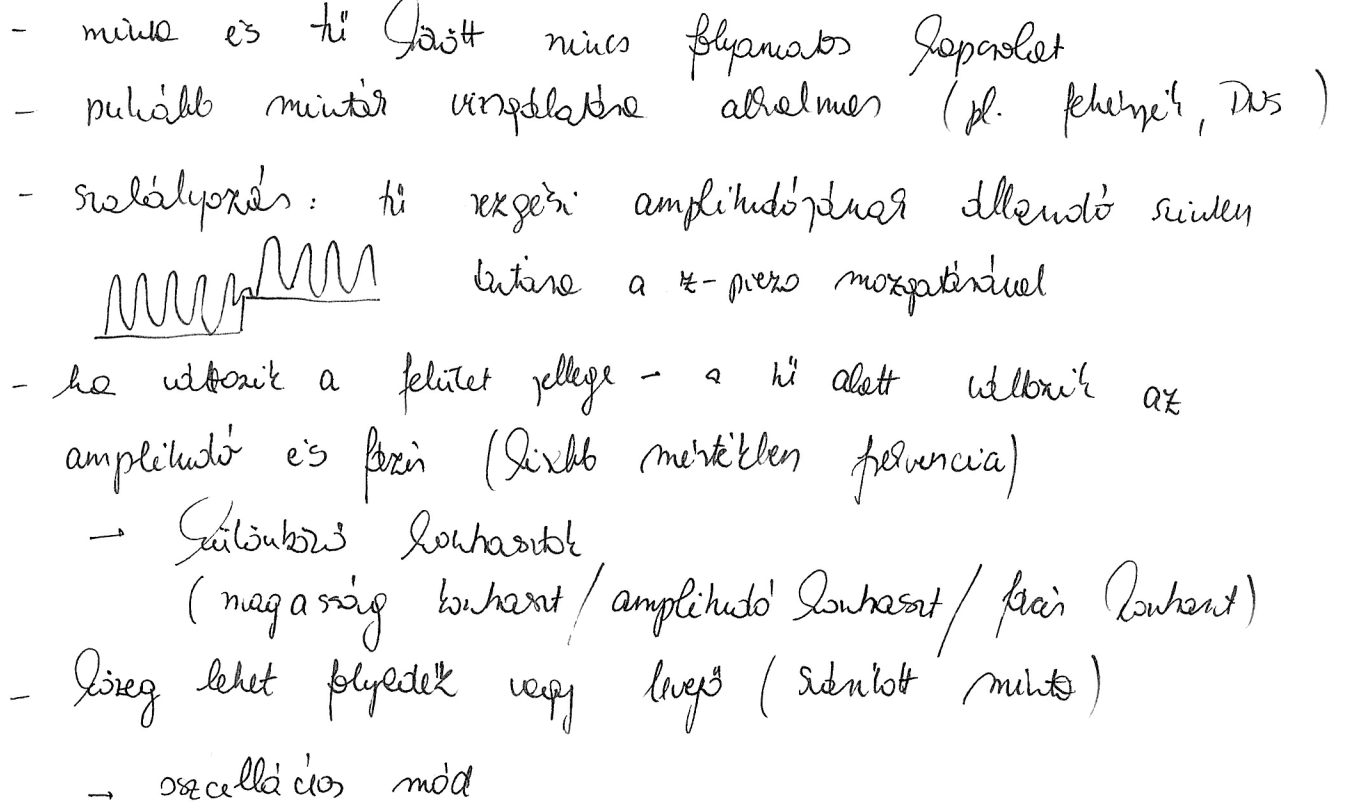 - minta és tű között nincs folyamatos kapcsolat
- puhább minták vizsgálatára alkalmas (pl. fehérjék, DNS)
- szabályozás: tű rezgési amplitúdójának állandó szinten
tartása a z-piezo mozgatásával
- ha változik a felület jellege - a tű alatt változik az
amplitúdó és fázis (kisebb mértékben frekvencia)
→ különböző kontrasztok
(magasság kontraszt/amplitúdó kontraszt/fázis kontraszt)
- közeg lehet folyadék vagy levegő (szárított minta)
→ oszcillációs mód